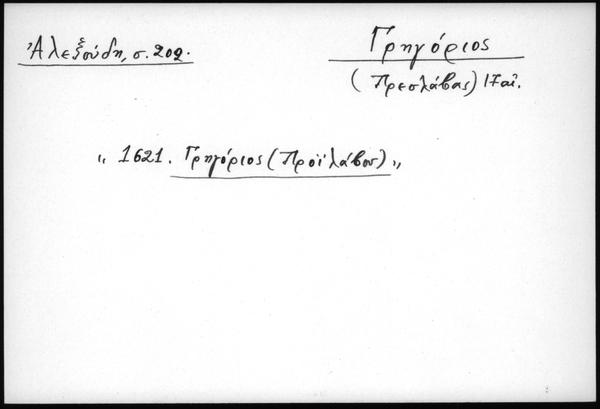 Ἀλεξούδη, σ. 202.
Γρηγόριος
(Πρεσλάβας) 17 αἰ.
„ 1621. Γρηγόριος (Προϊλάβου) „